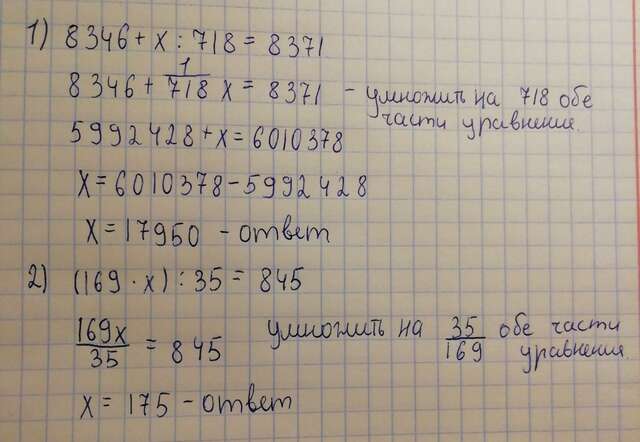 1) 8346 + x : 718 = 8371
8346 + 1/718 x = 8371 - умножить на 718 обе
части уравнения.
5992428 + x = 6010378
x = 6010378 - 5992428
x = 17950 - ответ
2) (169 · x) : 35 = 845
169x/35 = 845 умножить на 35/169 обе части
уравнения.
x = 175 - ответ